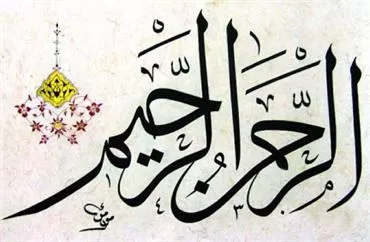 الرَّحمن الرَّحيم